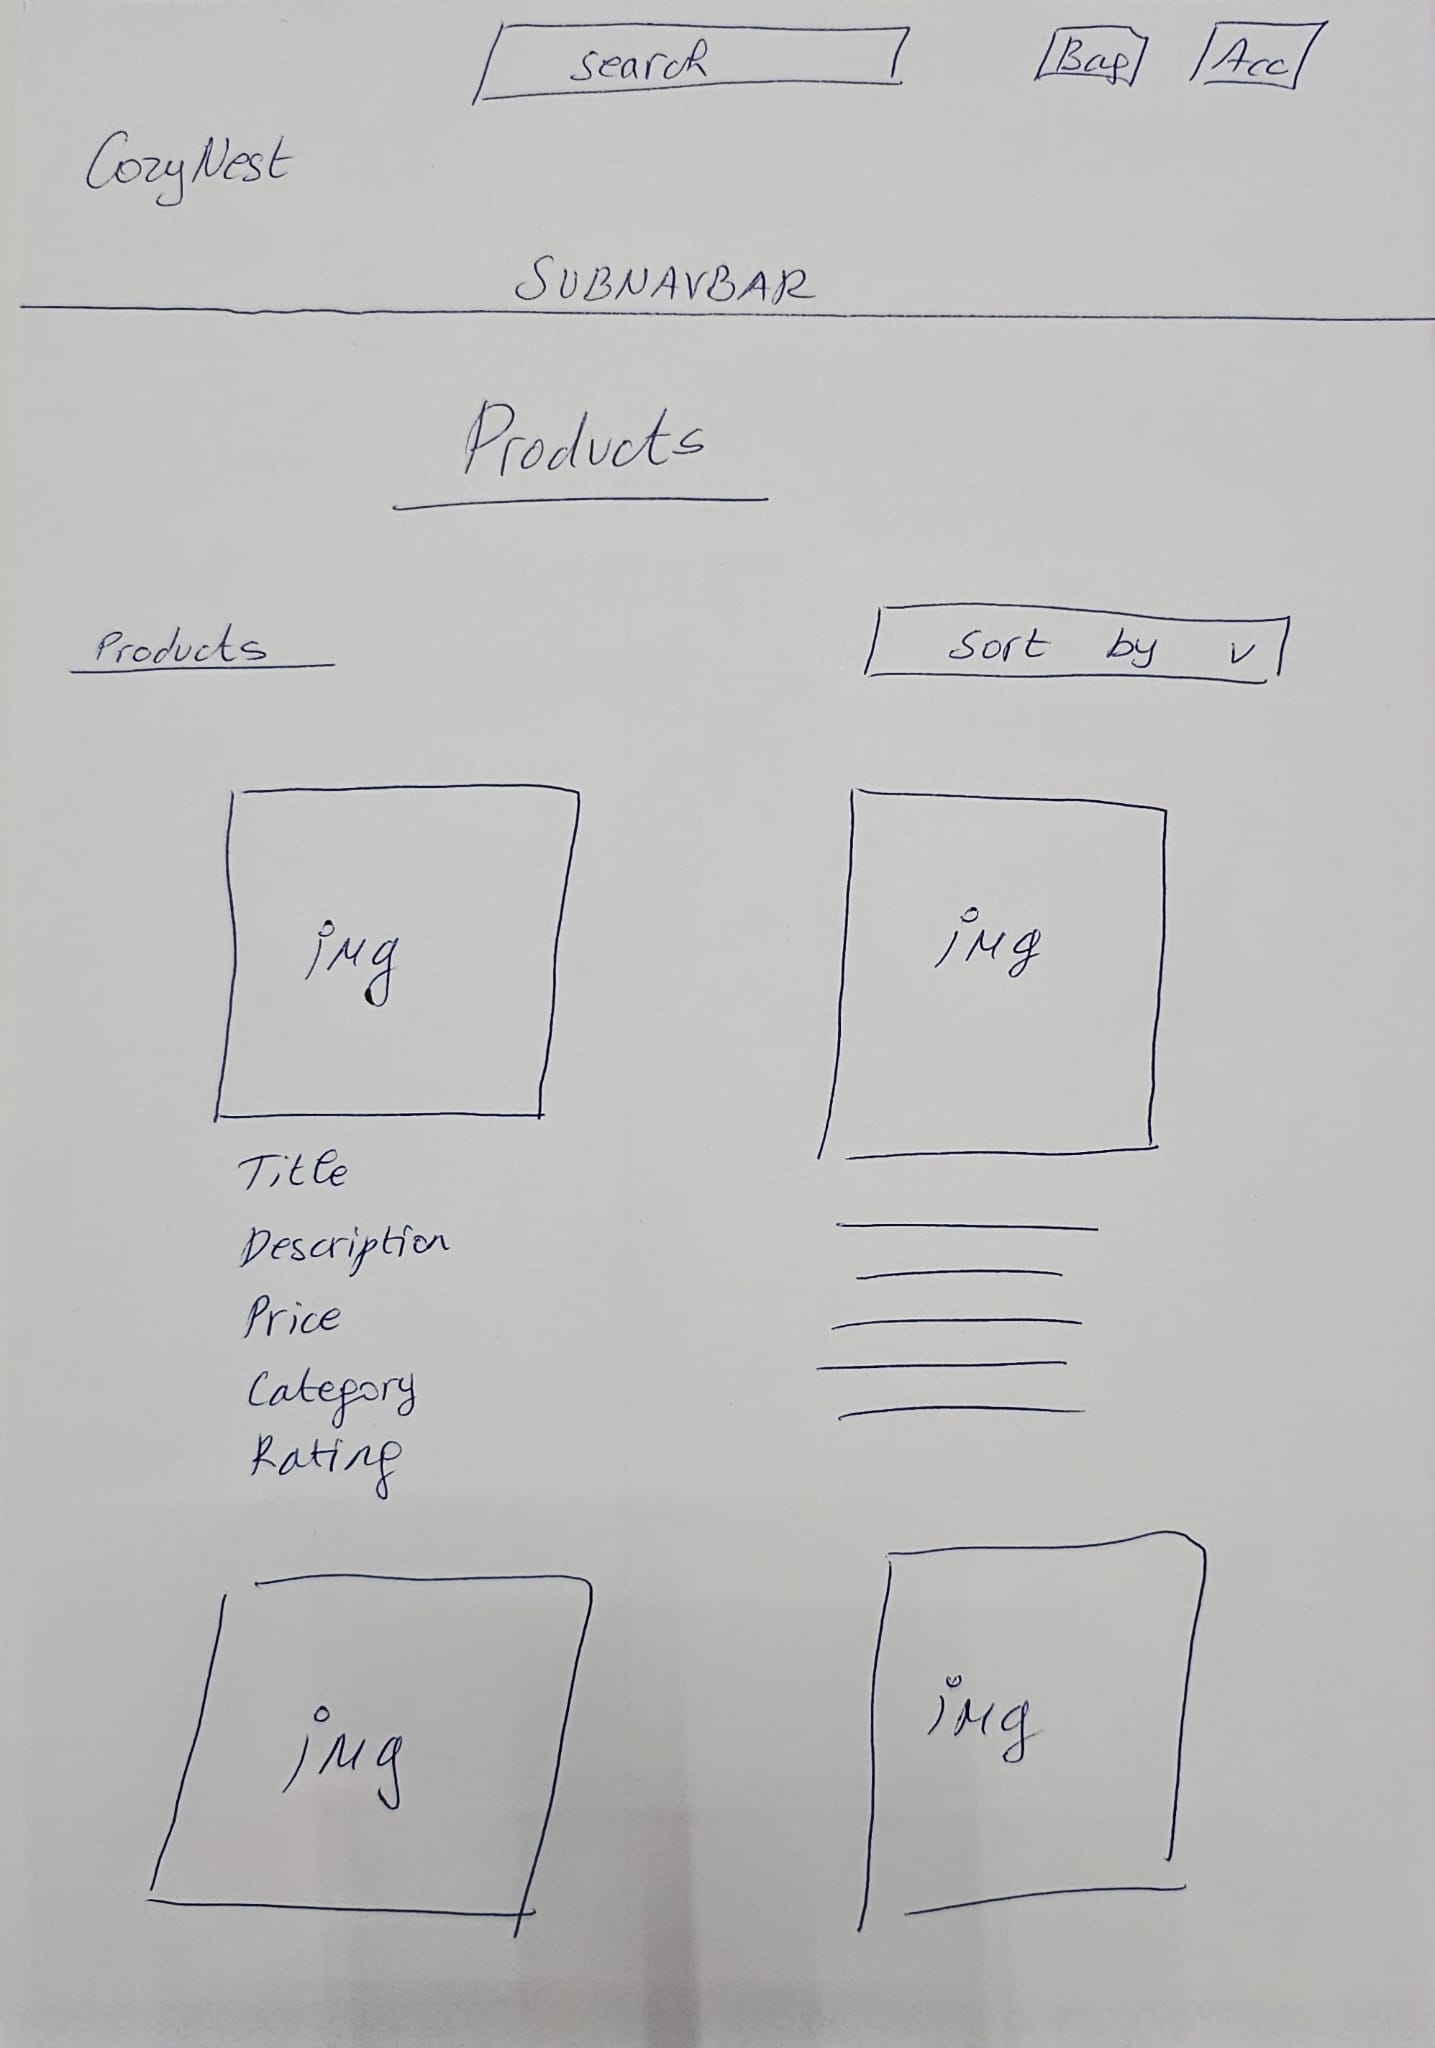 search Bag Acc
CozyNest
SUBNAVBAR
Products
Products Sort by v
img img
Title
Description
Price
Category
Rating
img img